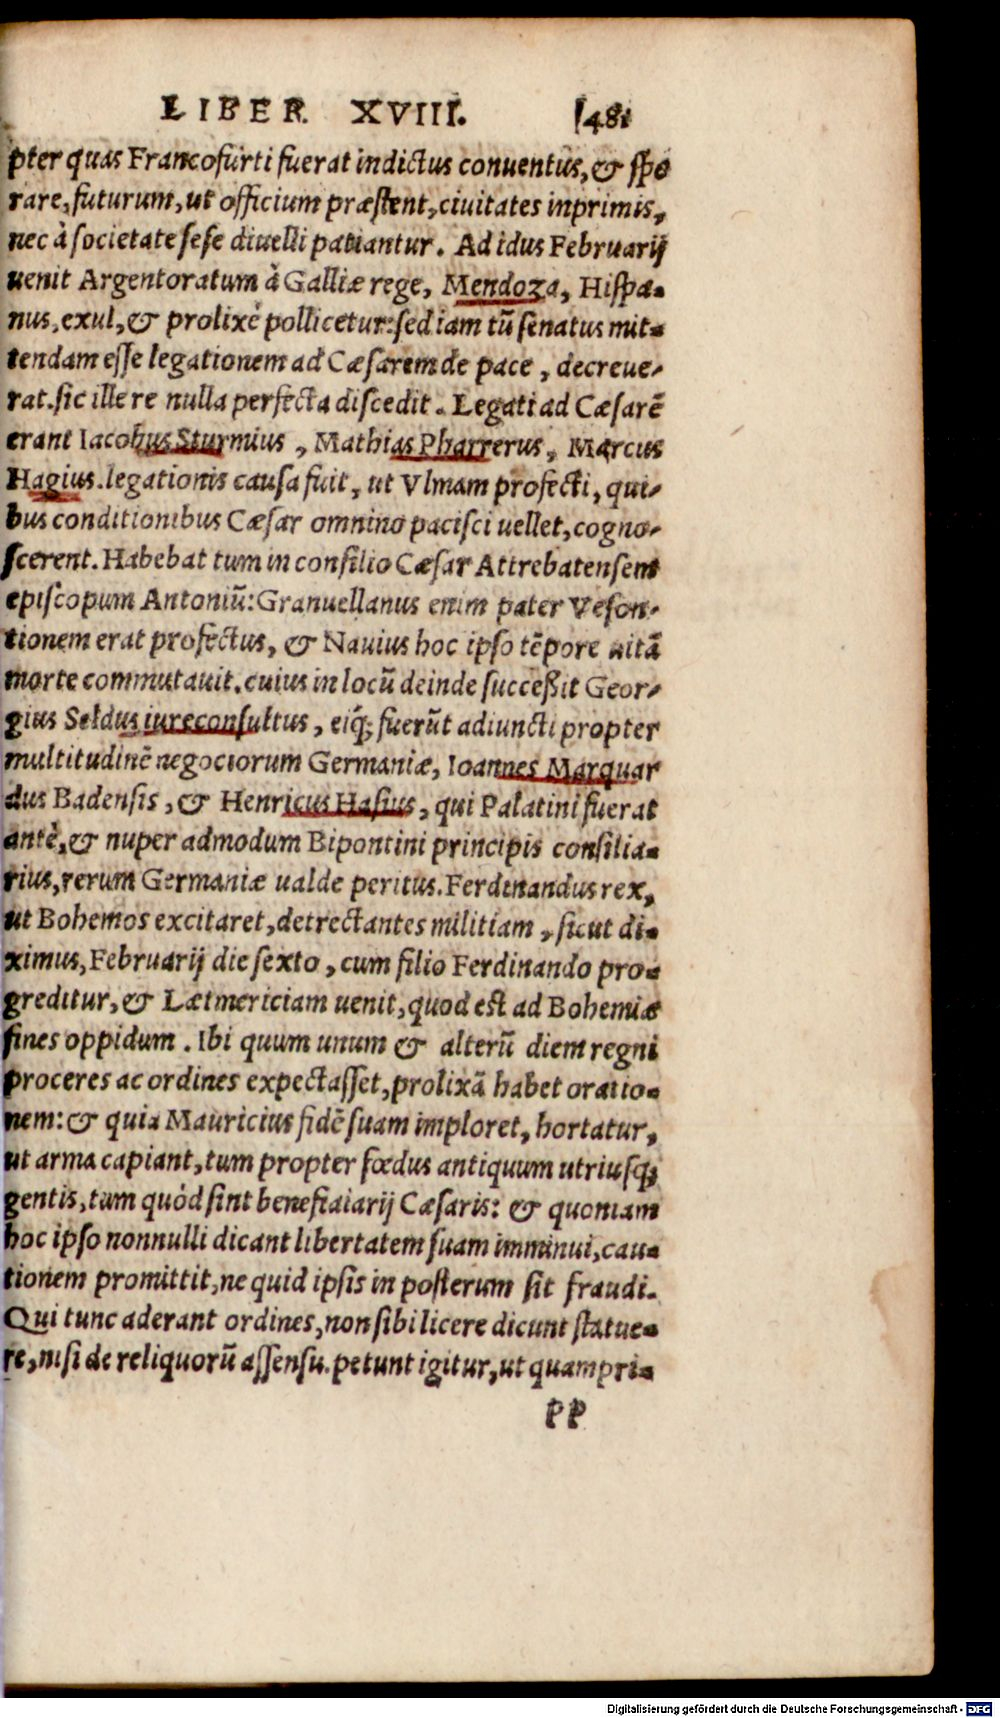 LIBER XVIII. 481
pter quas Francofurti fuerat indictus conuentus, & spe
rare, futurum, ut officium præstent, ciuitates inprimis,
nec à societate sese diuelli patiantur. Ad idus Februarij
uenit Argentoratum à Galliæ rege, Mendoza, Hispa-
nus, exul, & prolixè pollicetur: sed iam tū senatus mit-
tendam esse legationem ad Cæsarem de pace, decreue-
rat. sic ille re nulla perfecta discedit. Legati ad Cæsarē
erant Iacobus Sturmius, Mathias Pharrerus, Marcus
Hagius. legationis causa fuit, ut Vlmam profecti, qui-
bus conditionibus Cæsar omnino pacisci uellet, cogno-
scerent. Habebat tum in consilio Cæsar Attrebatensem
episcopum Antoniū: Granuellanus enim pater Veson-
tionem erat profectus, & Nauius hoc ipso tēpore uitā
morte commutauit. cuius in locū deinde successit Geor-
gius Seldus iureconsultus, eiq́; fuerūt adiuncti propter
multitudinē negociorum Germaniæ, Ioannes Marquar
dus Badensis, & Henricus Hasius, qui Palatini fuerat
antè, & nuper admodum Bipontini principis consilia-
rius, rerum Germaniæ ualde peritus. Ferdinandus rex,
ut Bohemos excitaret, detrectantes militiam, sicut di-
ximus, Februarij die sexto, cum filio Ferdinando pro-
greditur, & Lætmericiam uenit, quod est ad Bohemiæ
fines oppidum. Ibi quum unum & alterū diem regni
proceres ac ordines expectasset, prolixā habet oratio-
nem: & quia Mauricius fidē suam imploret, hortatur,
ut arma capiant, tum propter fœdus antiquum utriusq;
gentis, tum quòd sint beneficiarij Cæsaris: & quoniam
hoc ipso nonnulli dicant libertatem suam imminui, cau-
tionem promittit, ne quid ipsis in posterum sit fraudi.
Qui tunc aderant ordines, non sibi licere dicunt statue-
re, nisi de reliquorū assensu. petunt igitur, ut quampri-
PP
Digitalisierung gefördert durch die Deutsche Forschungsgemeinschaft - DFG